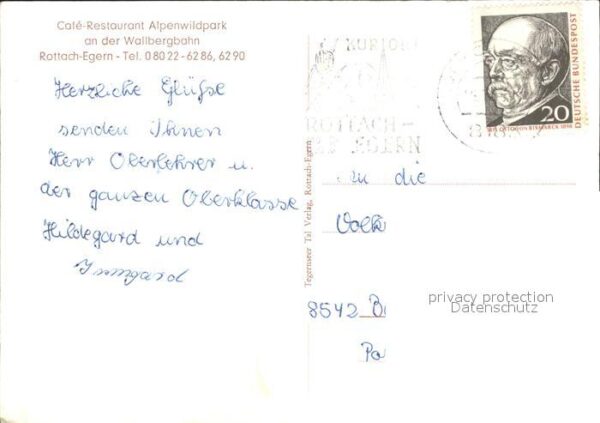 Café-Restaurant Alpenwildpark
an der Wallbergbahn
Rottach-Egern - Tel. 0 80 22 - 62 86, 62 90
Herzliche Grüße
senden Ihnen
Herr Oberlehrer u.
der ganzen Oberklasse
Hildegard und
Irmgard
Tegernseer Tal Verlag, Rottach-Egern
KURORT
ROTTACH-
EGERN
DEUTSCHE BUNDESPOST
20
OTTO VON BISMARCK
An die
Volks
8542
privacy protection
Datenschutz